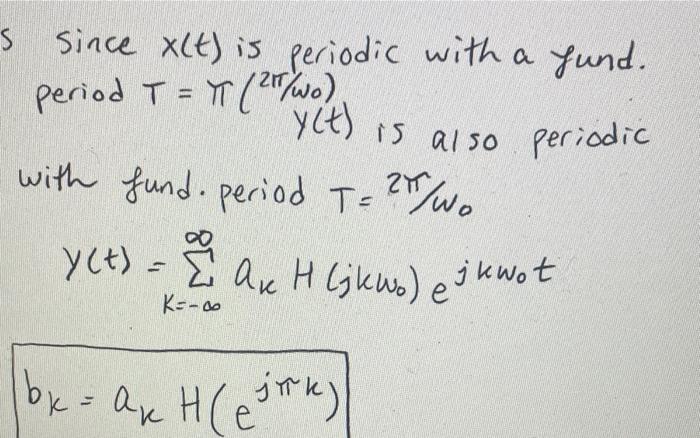 s since x(t) is periodic with a fund.
period T = π (2π/ω₀)
y(t) is also periodic
with fund. period T = 2π/ω₀
y(t) = ∑_{K=-∞}^{∞} a_k H (jkω₀) e^{jkω₀t}
b_k = a_k H(e^{jπk})